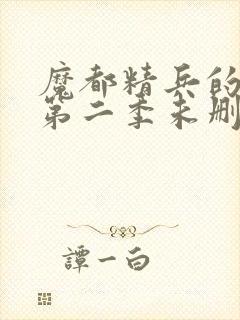 魔都精兵的
第二季未删
譚一白